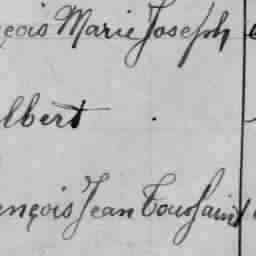 çois Marie Joseph
lbert
ençois Jean Toussaint